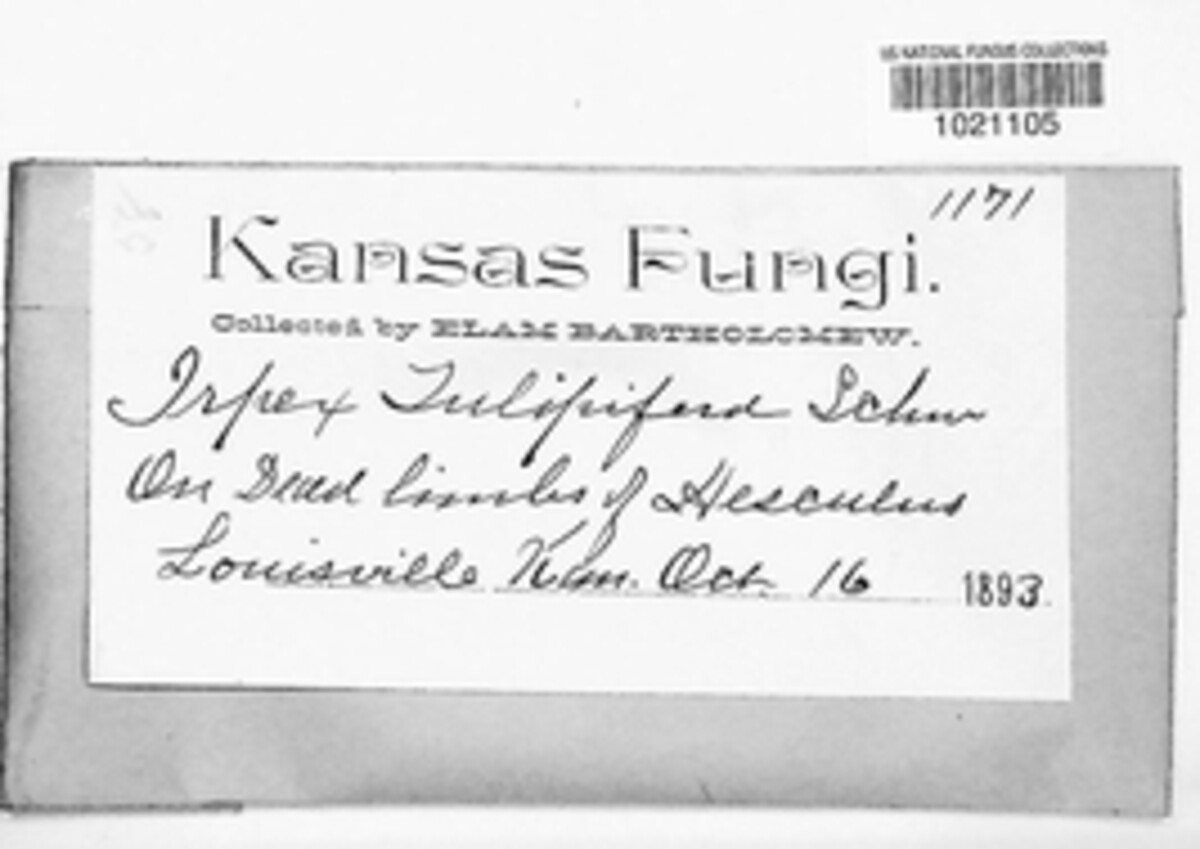 US NATIONAL FUNGUS COLLECTIONS
1021105
1171
Kansas Fungi.
Collected by ELAM BARTHOLOMEW.
Irpex Tulipifera Schw
On Dead limbs of Aesculus
Louisville Kan. Oct. 16 1893.